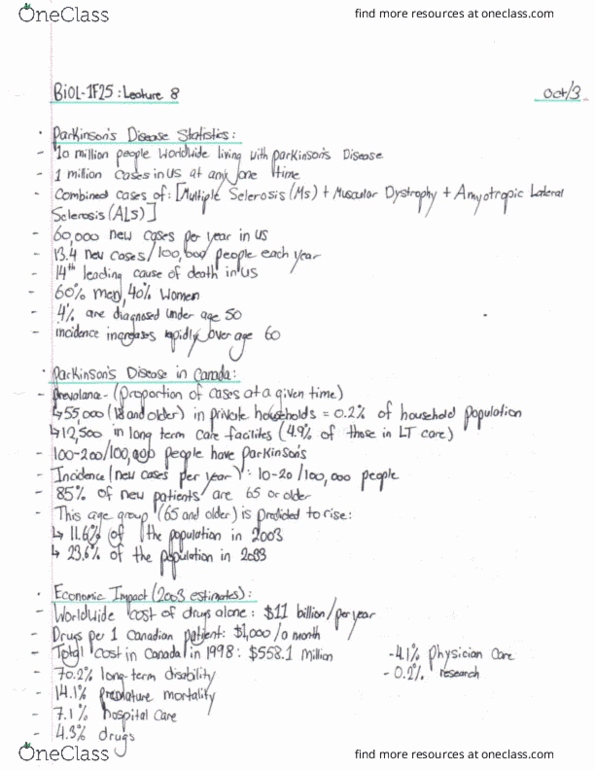 OneClass
find more resources at oneclass.com
BIOL-1F25: Lecture 8
Oct/3
· Parkinson's Disease Statistics:
- 10 million people worldwide living with Parkinson's Disease
- 1 million cases in US at any one time
- Combined cases of: [Multiple Selerosis (Ms) + Muscular Dystrophy + Amyotropic Lateral
Selerosis (ALS)]
- 60,000 new cases per year in US
- 13.4 new cases/100,000 people each year
- 14th leading cause of death in US
- 60% men, 40% Women
- 4% are diagnosed under age 50
- incidence increases rapidly over age 60
· Parkinson's Disease in Canada:
- Prevalance - (Proportion of cases at a given time)
↳ 55,000 (18 and older) in private households = 0.2% of household population
↳ 12,500 in long term care facilites (4.9% of those in LT care)
- 100-200/100,000 people have Parkinson's
- Incidence (new cases per year): 10-20/100,000 people
- 85% of new patients are 65 or older
- This age group (65 and older) is predicted to rise:
↳ 11.6% of the population in 2003
↳ 23.6% of the population in
· Economic Impact (2003 estimates):
- Worldwide cost of drugs alone: $11 billion/per year
- Drugs per 1 Canadian patient: $1,000/a month
- Total cost in Canada in 1998: $558.1 Million
- 4.1% Physician Care
- 70.2% long-term disability
- 0.2% research
- 14.1% premature mortality
- 7.1% hospital care
- 4.3% drugs
OneClass
find more resources at oneclass.com